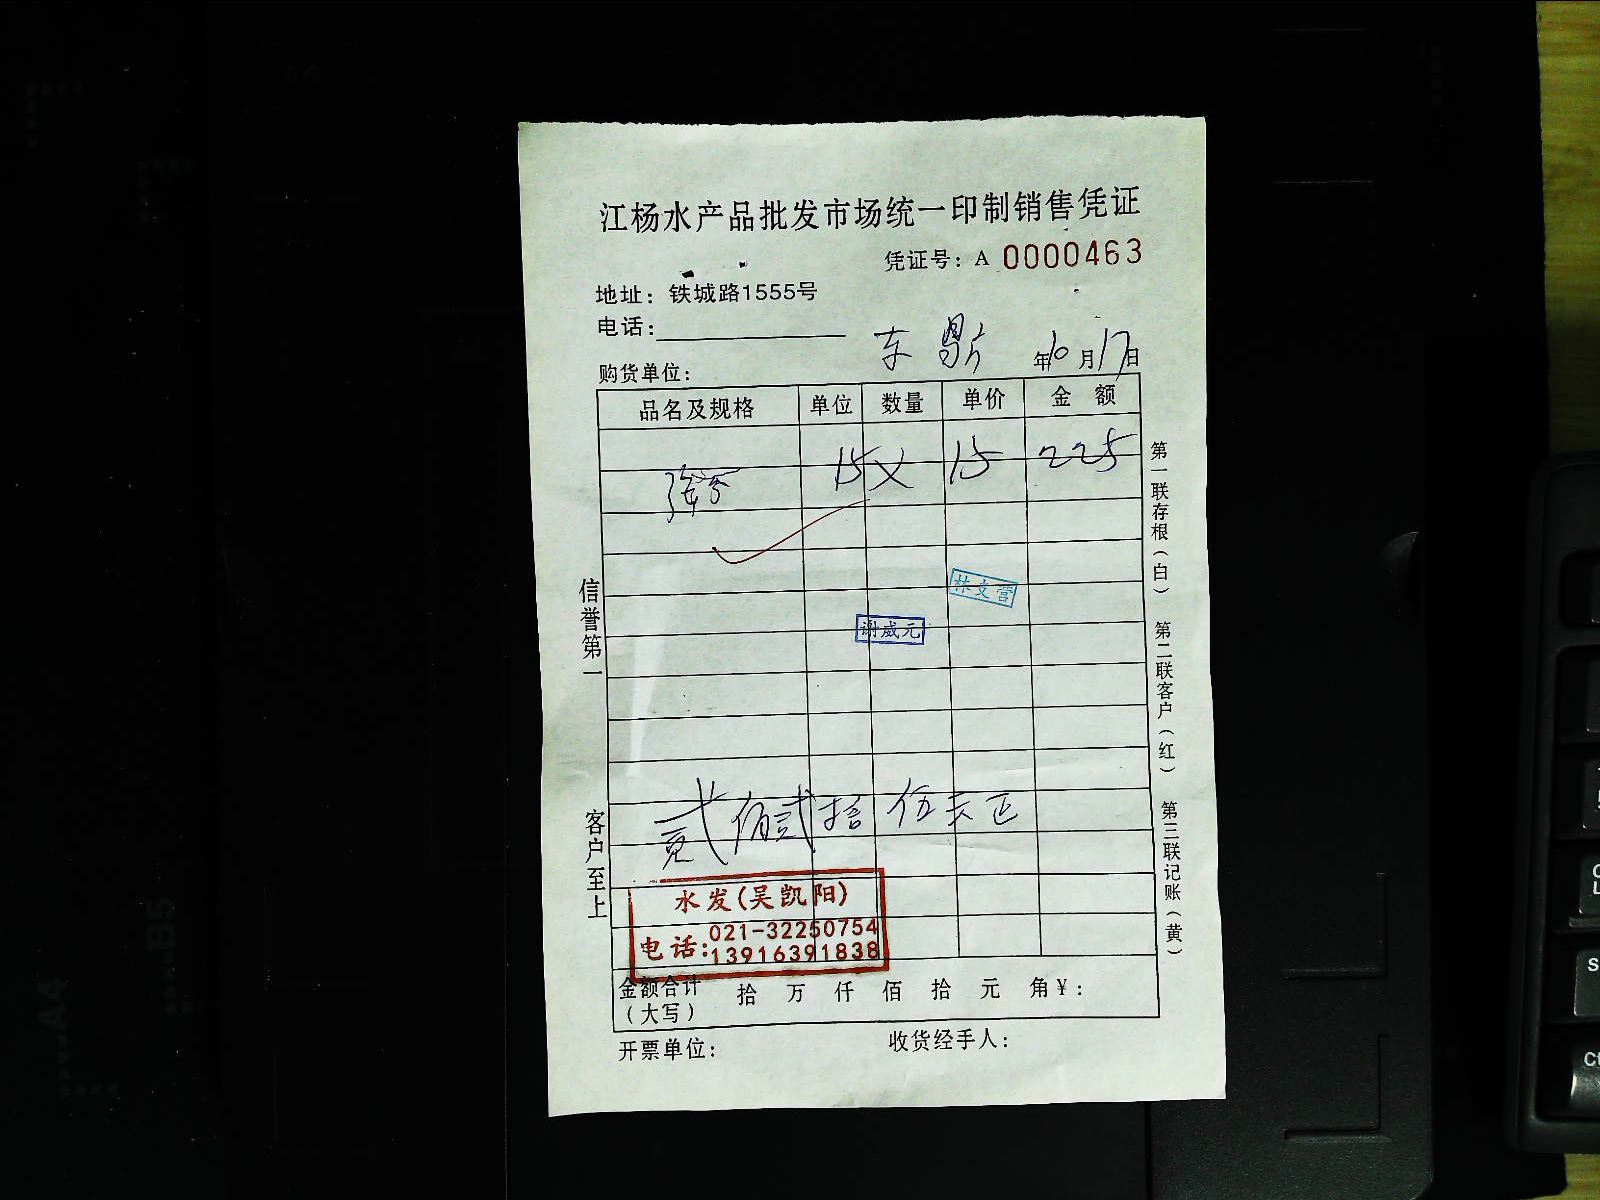 江杨水产品批发市场统一印制销售凭证
凭证号：A 0000463
地址：铁城路1555号
电话：
年10月17日
购货单位：
品名及规格 单位 数量 单价 金 额
15 15 225
林文营
谢威元
贰佰贰拾伍元正
水发(吴凯阳)
电话：021-32250754
13916391838
金额合计（大写） 拾 万 仟 佰 拾 元 角￥：
开票单位： 收货经手人：
信誉第一
客户至上
第一联存根（白）
第二联客户（红）
第三联记账（黄）